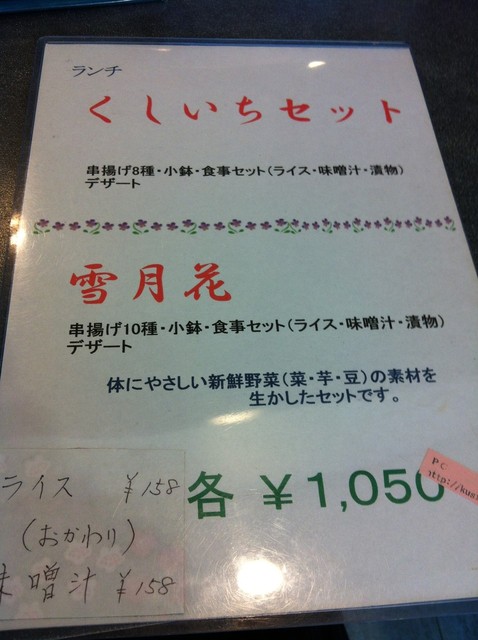 ランチ
くしいちセット
串揚げ8種・小鉢・食事セット(ライス・味噌汁・漬物)
デザート
雪月花
串揚げ10種・小鉢・食事セット(ライス・味噌汁・漬物)
デザート
体にやさしい新鮮野菜(菜・芋・豆)の素材を
生かしたセットです。
各 ￥1,050
PC
http://kus
ライス ¥158
(おかわり)
味噌汁 ¥158